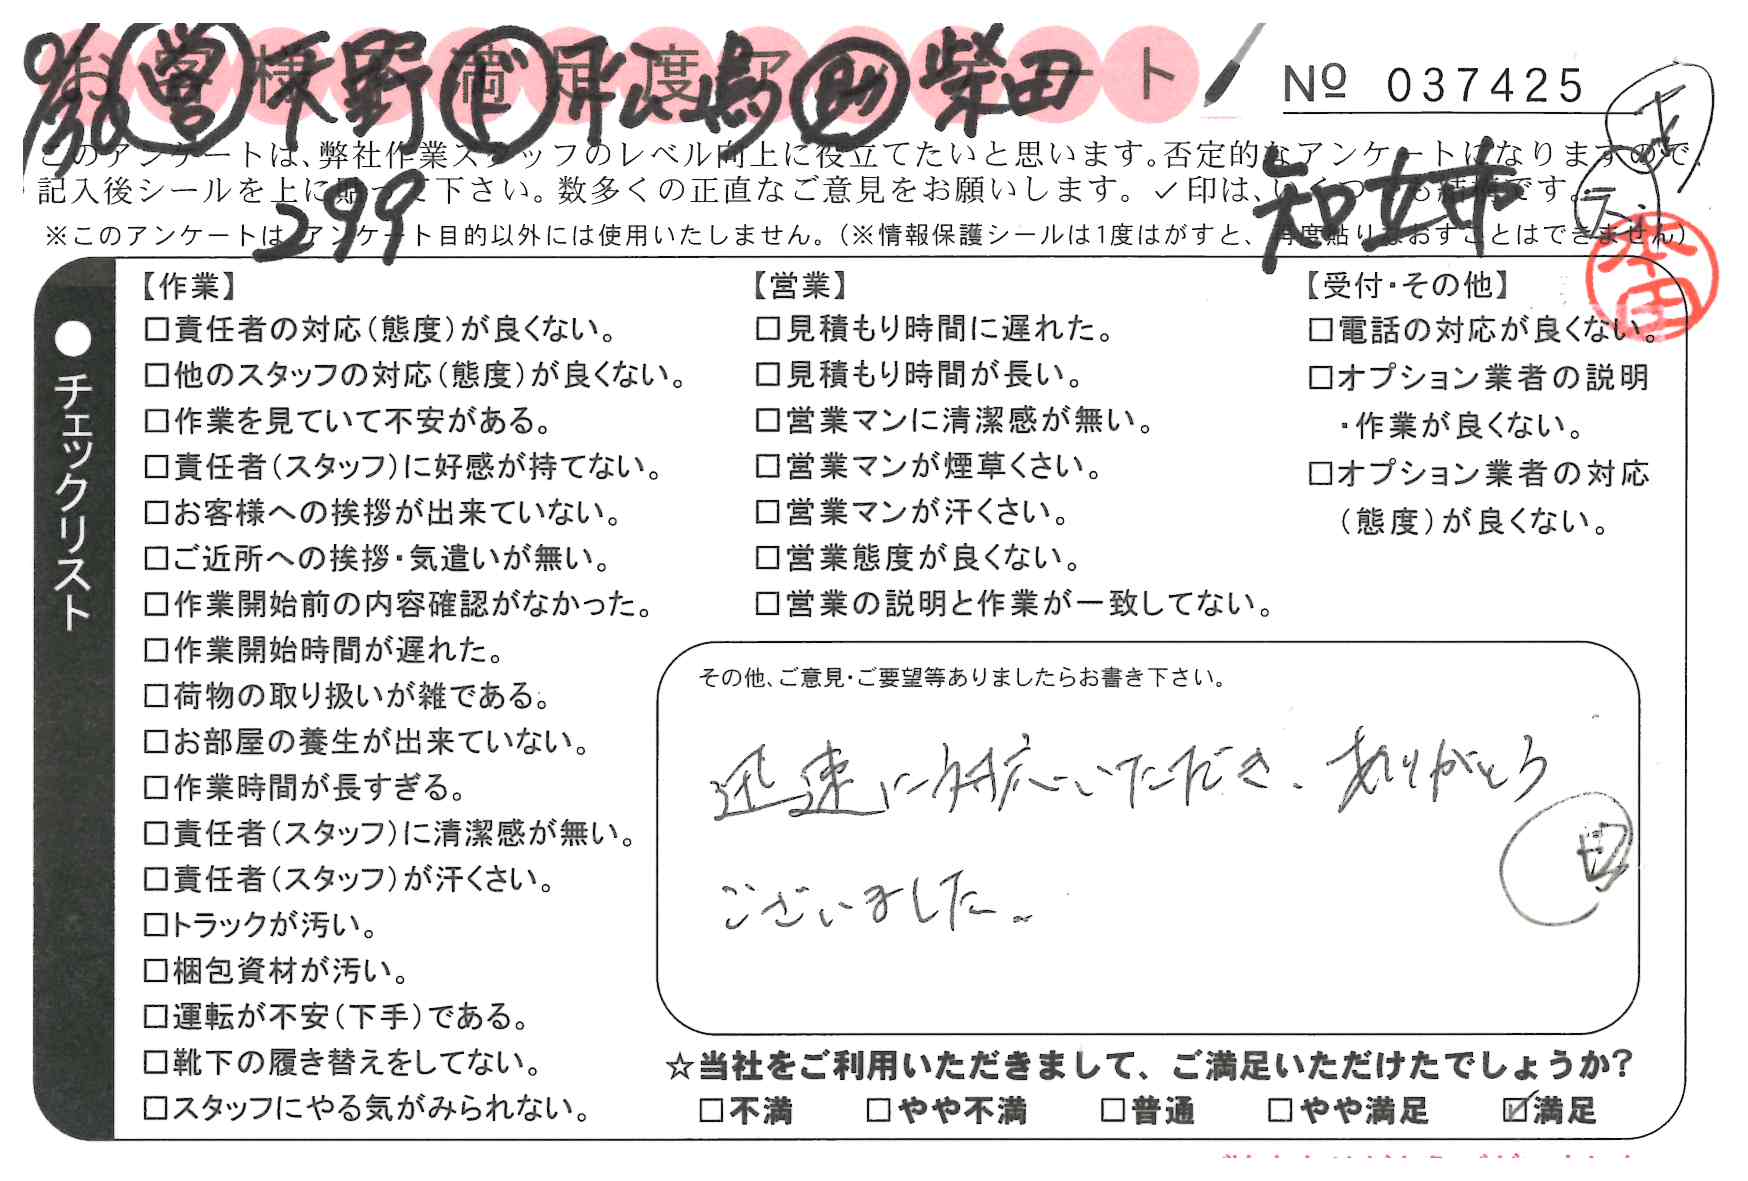 お客様満足度アンケート
9/30 営 木野 ド 平松嶋 助 柴田
№ 037425
このアンケートは、弊社作業スタッフのレベル向上に役立てたいと思います。否定的なアンケートになりますので、
記入後シールを上に貼って下さい。数多くの正直なご意見をお願いします。✓印は、いくつでも結構です。
299
※このアンケートは、アンケート目的以外には使用いたしません。(※情報保護シールは1度はがすと、再度貼りなおすことはできません)
本田
●チェックリスト
【作業】
□責任者の対応(態度)が良くない。
□他のスタッフの対応(態度)が良くない。
□作業を見ていて不安がある。
□責任者(スタッフ)に好感が持てない。
□お客様への挨拶が出来ていない。
□ご近所への挨拶・気遣いが無い。
□作業開始前の内容確認がなかった。
□作業開始時間が遅れた。
□荷物の取り扱いが雑である。
□お部屋の養生が出来ていない。
□作業時間が長すぎる。
□責任者(スタッフ)に清潔感が無い。
□責任者(スタッフ)が汗くさい。
□トラックが汚い。
□梱包資材が汚い。
□運転が不安(下手)である。
□靴下の履き替えをしてない。
□スタッフにやる気がみられない。
【営業】
□見積もり時間に遅れた。
□見積もり時間が長い。
□営業マンに清潔感が無い。
□営業マンが煙草くさい。
□営業マンが汗くさい。
□営業態度が良くない。
□営業の説明と作業が一致してない。
【受付・その他】
□電話の対応が良くない。
□オプション業者の説明
・作業が良くない。
□オプション業者の対応
(態度)が良くない。
その他、ご意見・ご要望等ありましたらお書き下さい。
迅速に対応いただき、ありがとう
ございました。
☆当社をご利用いただきまして、ご満足いただけたでしょうか?
□不満 □やや不満 □普通 □やや満足 ☑満足